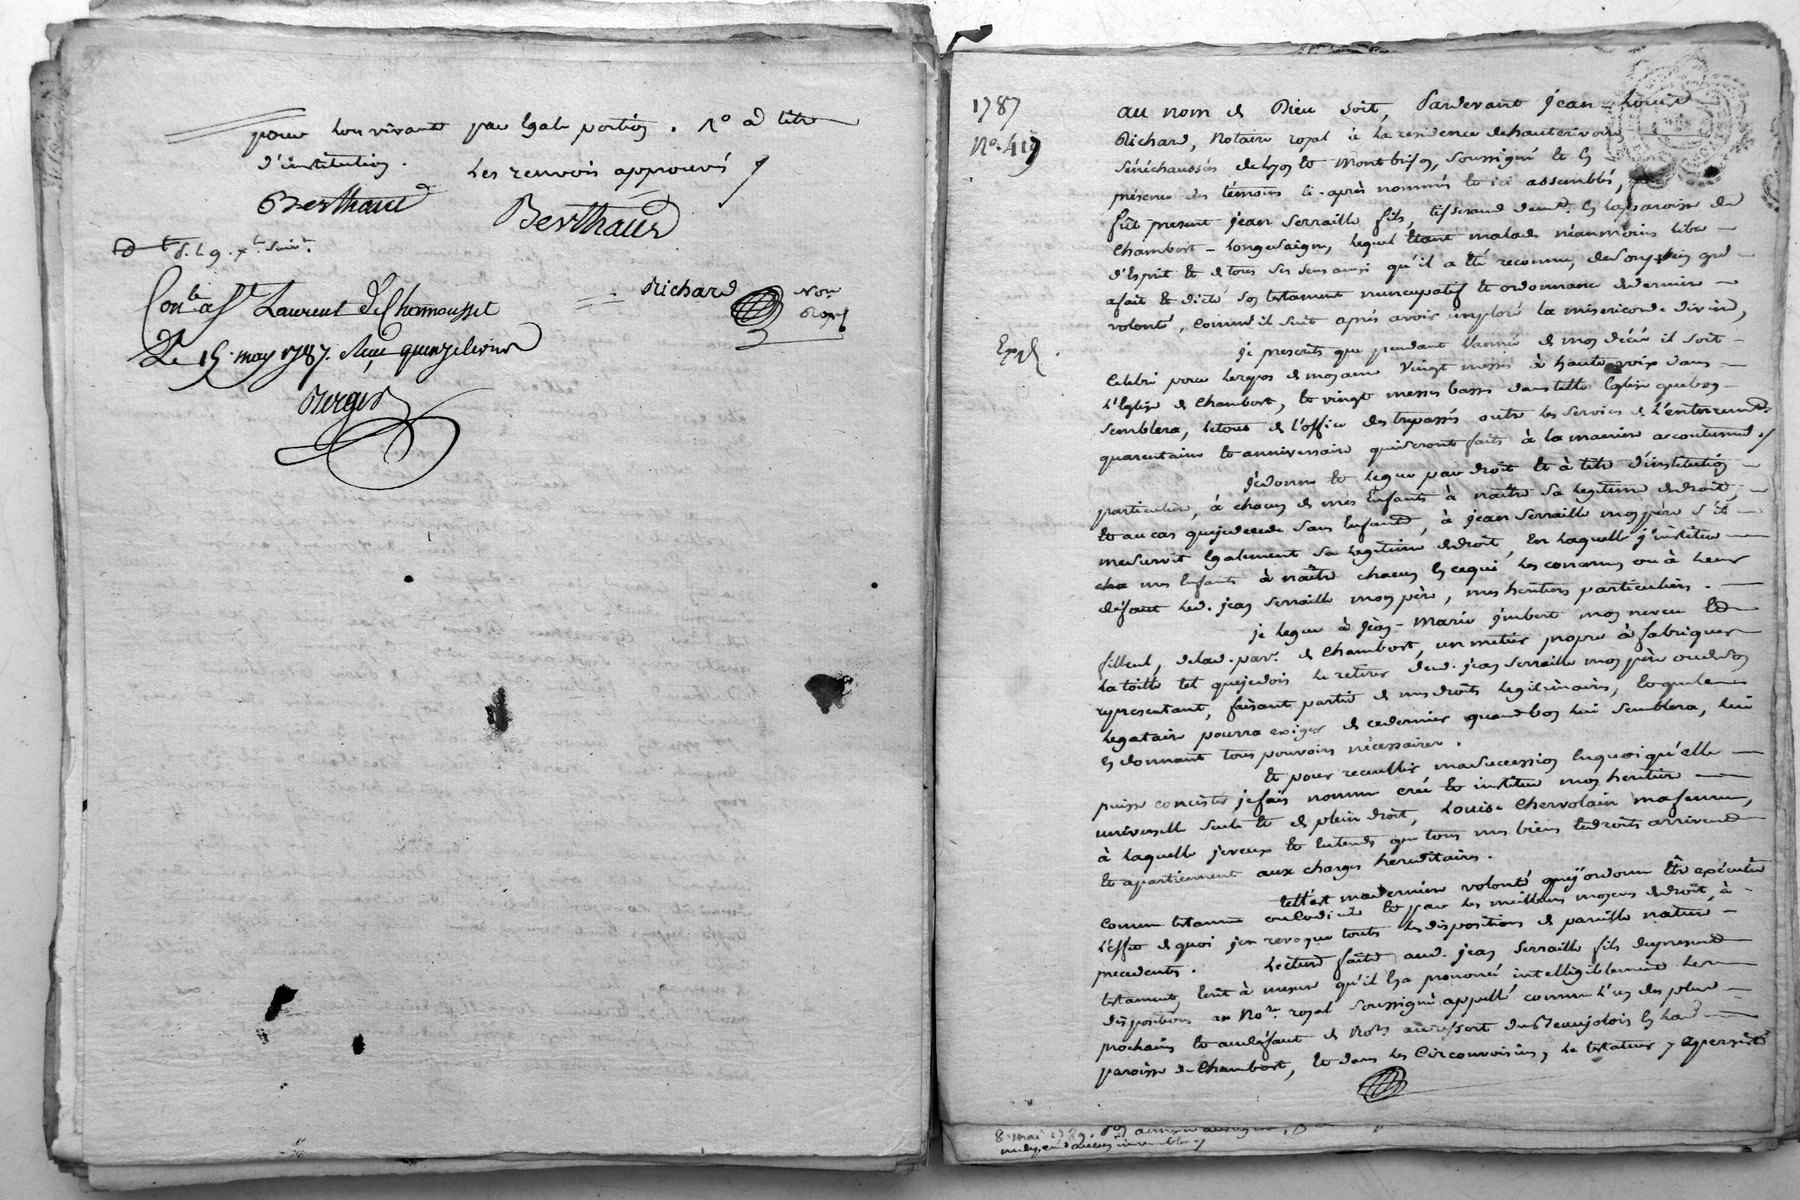 pour lors vivants par égale portion. 1° à titre
d'institution. Les renvois approuvés
Berthaud Berthaud
Richard Nore
Royal
Conlé à St Laurent de Chamousset
Le 15 may 1787. Reçu quinze livres
Berger
1787
No. 419
au nom de Dieu soit, Pardevant jean-Louis
Richard, Notaire royal à la residence de hauterivoire
Sénéchaussées de lyon et Montbrison, soussigné et en
présence des témoins ci-après nommés et ici assemblés,
fût présent jean Serraille fils, tisserand demt. en la paroisse de
Chambost-Longessaigne, lequel étant malade néanmoins libre
d'Esprit et de tous ses sens ainsi qu'il a été reconnu, de son plein gré
a fait et dicté son testament nuncupatif et ordonnance de derniere
volonté, comme il suit après avoir imploré la misericorde divine,
Expé.
je prescrits que pendant l'année de mon décès il soit
célébré pour le repos de mon ame vingt messes à haute voix dans
l'Eglise de Chambost, et vingt messes basses dans telle Eglise que bon
semblera, le tout de l'office des trépassés outre les services de l'enterrement
quarantaine et anniversaire qui seront faits à la maniere accoutumée
je donne et legue par droit et à titre d'institution
particuliere, à chacun de mes Enfants à naître sa legitime de droit,
et au cas que je decede sans Enfants, à jean Serraille mon père s'il
me survit également sa legitime de droit, en laquelle j'institue
mes Enfants à naître chacun en ce qui les concerne ou à leur
défaut led. jean Serraille mon père, mes heritiers particuliers.
je legue à jean-Marie jmbert mon neveu et
filleul, de lad. parse. de Chambost, un métier propre à fabriquer
la toille tel que je dois le retirer dud. jean Serraille mon père ou de son
representant, faisant partie de mes droits legitimaires, lequel
legataire pourra exiger de ce dernier quand bon lui semblera, lui
en donnant tous pouvoirs nécessaires.
Et pour recueillir ma succession en quoi qu'elle
puisse concister je fais nomme crée et institue mon heritiere
universelle seule et de plein droit, Louise Chervolain ma femme,
à laquelle je veux et entends que tous mes biens et droits arrivent
et apartiennent aux charges hereditaires.
telle est ma derniere volonté que j'ordonne être exécutée
comme testament ou codicile et par les meilleurs moyens de droit, à
l'effet de quoi j'en revoque toutes les dispositions de pareille nature
precedentes. Lecture faite aud. jean Serraille fils du present
testament, écrit à mesure qu'il en a prononcé intelligiblement les
dispositions au Nore. royal soussigné appellé comme l'un des plus
prochains et au défaut de Nores au ressort du Beaujolois en lad.
paroisse de Chambost, et dans les Circonvoisines, le testateur y a persisté
8. mai 1789.